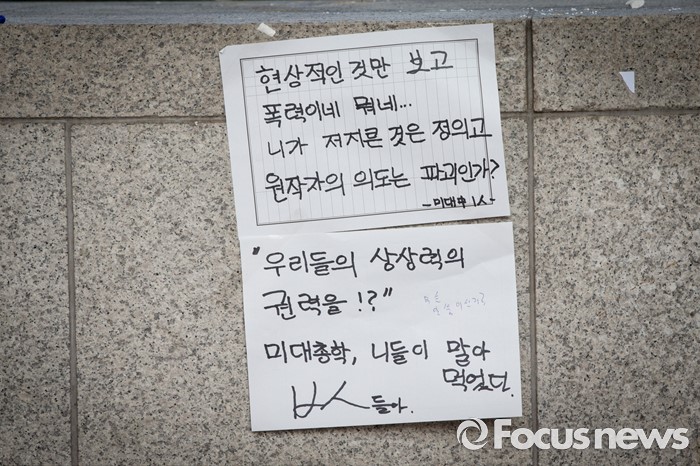 현상적인 것만 보고
폭력이네 뭐네...
니가 저지른 것은 정의고
원작자의 의도는 파괴인가?
-미대中 1人-
"우리들의 상상력의
권력을!?"
미대총학, 니들이 말아
먹었다.
ㅂㅅ들아.
Focus news